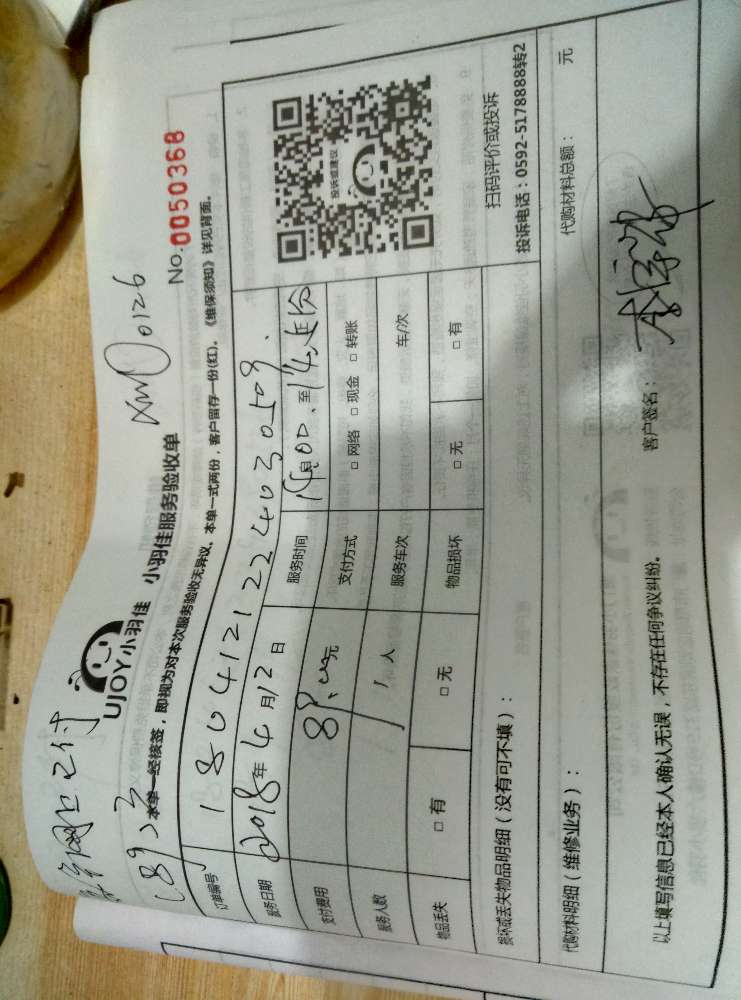 网上已付
89元
XM 0126
UJOY小羽佳 小羽佳服务验收单
No.0050368
本单一经核签，即视为对本次服务验收无异议，本单一式两份，客户留存一份(红)，《维保须知》详见背面。
订单编号 1804121224030509
服务日期 2018年4月12日 服务时间 14:00 至
支付费用 89.00元 支付方式 □ 网络 □ 现金 □ 转账
服务人数 1 人 服务车次 车/次
物品丢失 □ 有 □ 无 物品损坏 □ 无 □ 有
投诉或建议
扫码评价或投诉
投诉电话：0592-5178888转2
损坏或丢失物品明细（没有可不填）：
代购材料明细（维修业务）： 代购材料总额： 元
以上填写信息已经本人确认无误，不存在任何争议纠纷。 客户签名：